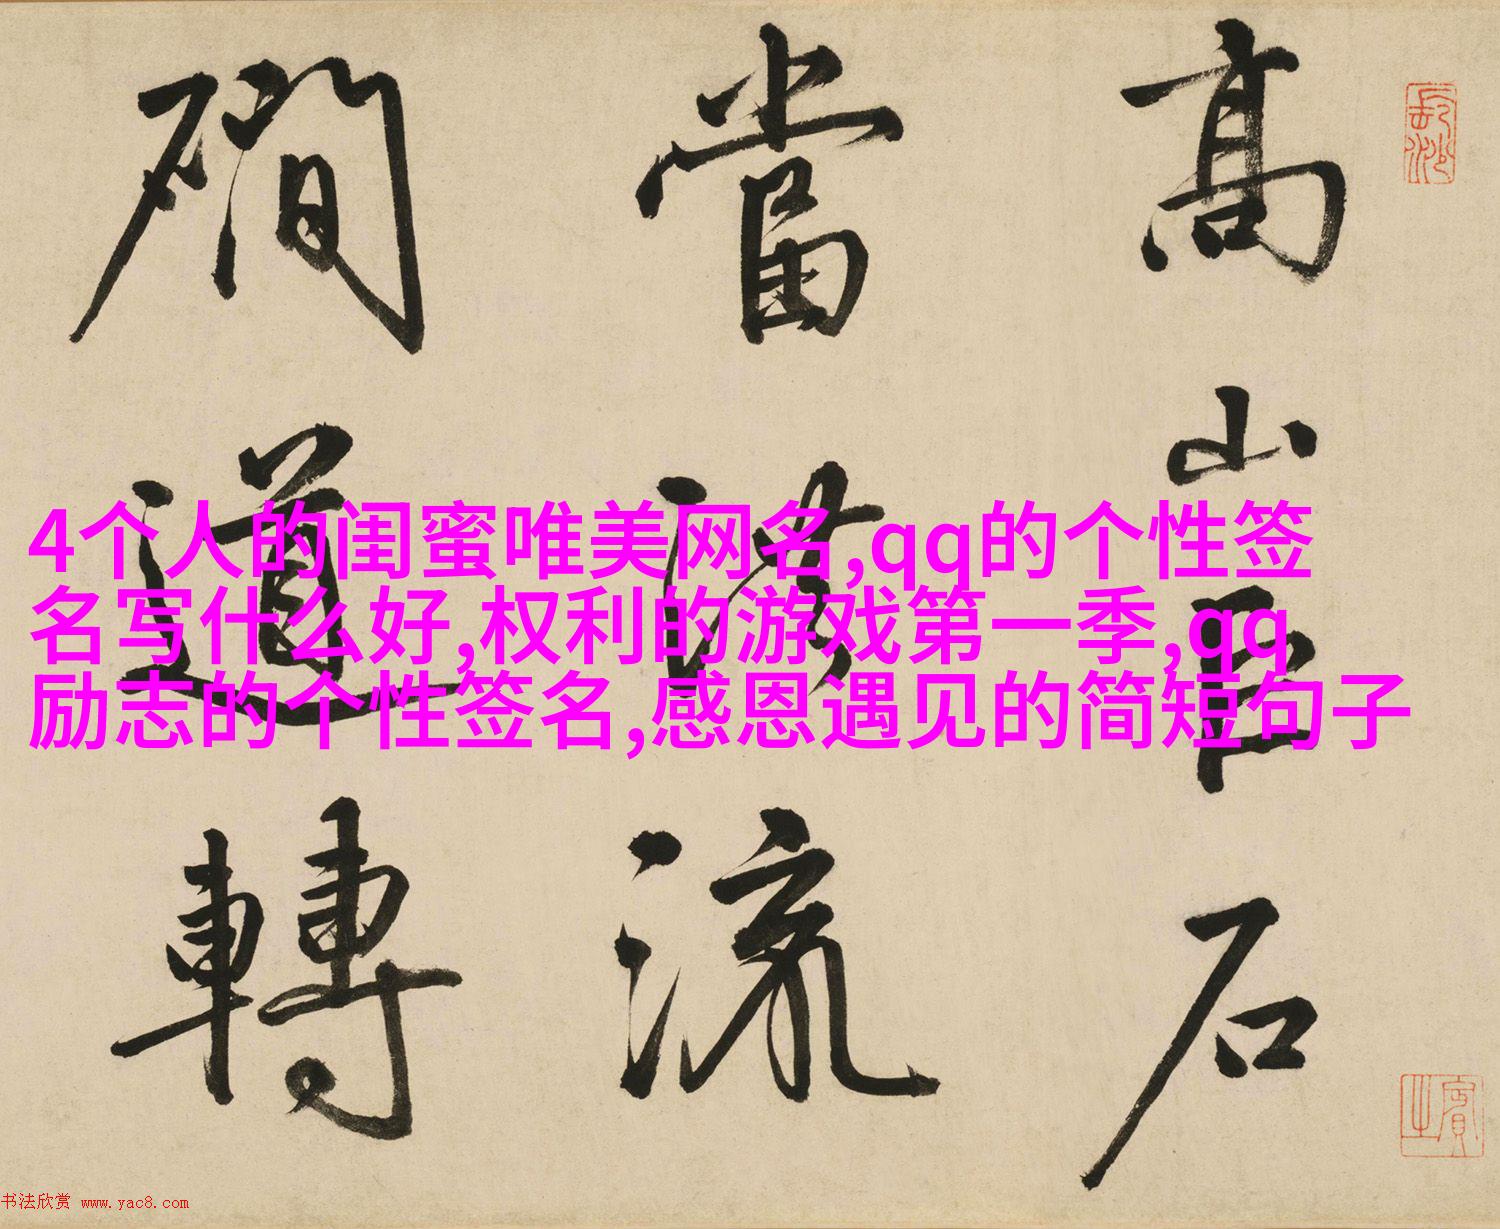 4个人的闺蜜唯美网名,qq的个性签
名写什么好,权利的游戏第一季,qq
励志的个性签名,感恩遇见的简短句子
長沙
高山巨石
當洪流
磵道轉
賓之
书法欣赏 www.yac8.com